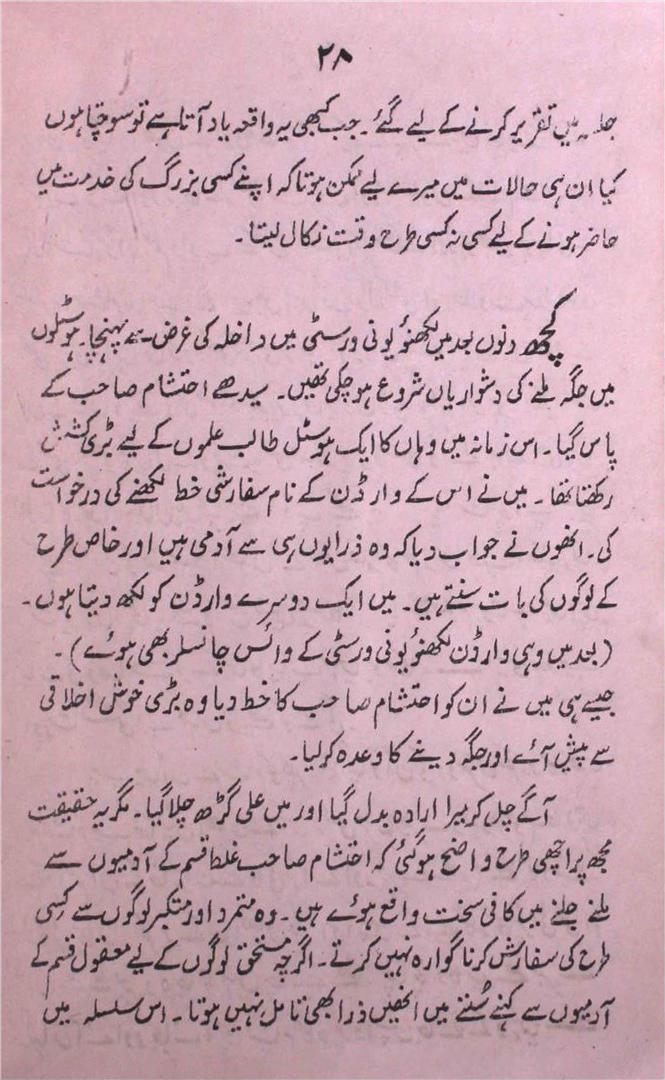 ۲۸
جلسہ میں تقریر کرنے کے لیے گئے۔ جب کبھی یہ واقعہ یاد آتا ہے تو سوچتا ہوں
کیا ان ہی حالات میں میرے لیے ممکن ہوتا کہ اپنے کسی بزرگ کی خدمت میں
حاضر ہونے کے لیے کسی نہ کسی طرح وقت نکال لیتا۔
کچھ دنوں بعد میں لکھنؤ یونی ورسٹی میں داخلہ کی غرض سے پہنچا۔ ہوسٹلوں
میں جگہ ملنے کی دشواریاں شروع ہو چکی تھیں۔ سیدھے احتشام صاحب کے
پاس گیا۔ اس زمانہ میں وہاں کا ایک ہوسٹل طالب علموں کے لیے بڑی کشش
رکھتا تھا۔ میں نے اس کے وارڈن کے نام سفارشی خط لکھنے کی درخواست
کی۔ انھوں نے جواب دیا کہ وہ ذرا یوں ہی سے آدمی ہیں اور خاص طرح
کے لوگوں کی بات سنتے ہیں۔ میں ایک دوسرے وارڈن کو لکھ دیتا ہوں۔
(بعد میں وہی وارڈن لکھنؤ یونی ورسٹی کے وائس چانسلر بھی ہوئے)۔
جیسے ہی میں نے ان کو احتشام صاحب کا خط دیا وہ بڑی خوش اخلاقی
سے پیش آئے اور جگہ دینے کا وعدہ کر لیا۔
آگے چل کر میرا ارادہ بدل گیا اور میں علی گڑھ چلا گیا۔ مگر یہ حقیقت
مجھ پر اچھی طرح واضح ہو گئی کہ احتشام صاحب غلط قسم کے آدمیوں سے
ملنے جلنے میں کافی سخت واقع ہوئے ہیں۔ وہ متمرد اور متکبر لوگوں سے کسی
طرح کی سفارش کرنا گوارہ نہیں کرتے۔ اگرچہ مستحق لوگوں کے لیے معقول قسم کے
آدمیوں سے کہنے سُننے میں انھیں ذرا بھی تامل نہیں ہوتا۔ اس سلسلہ میں